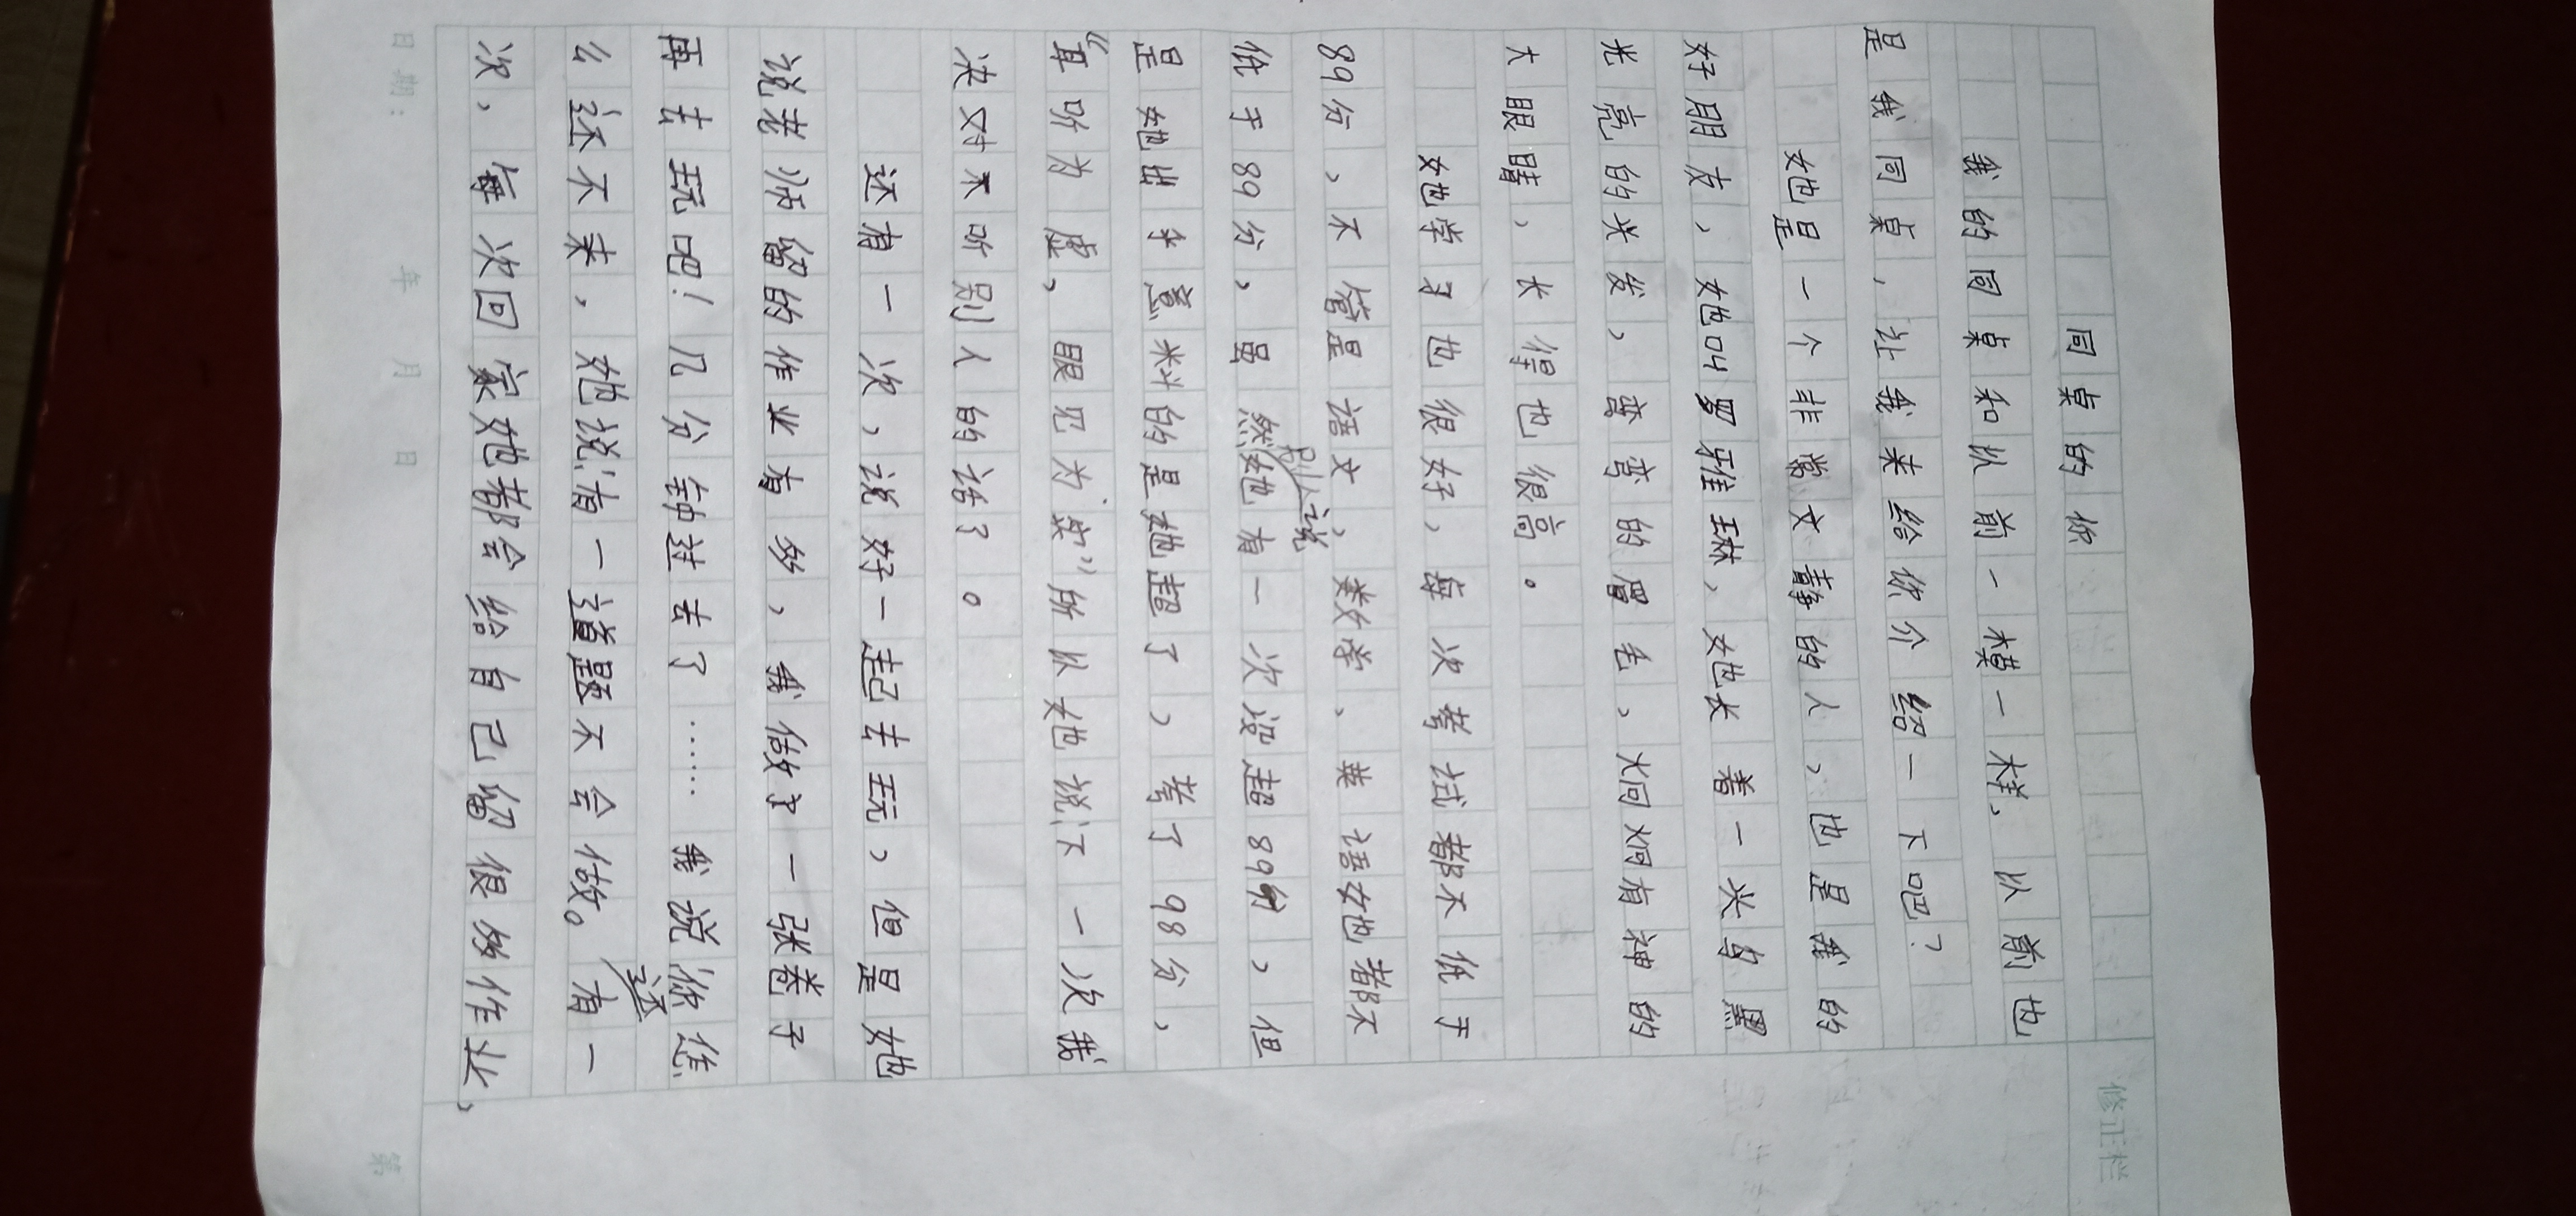 同桌的你
我的同桌和以前一模一样,以前也
是我同桌,让我来给你介绍一下吧?
她是一个非常文静的人,也是我的
好朋友,她叫罗雅琳,她长着一头乌黑
光亮的头发,弯弯的眉毛,炯炯有神的
大眼睛,长得也很高。
她学习也很好,每次考试都不低于
89分,不管是语文,数学、英语她都不
低于89分,虽然别人说她有一次没超89分,但
是她出乎意料的是她超了,考了98分,
“耳听为虚,眼见为实”所以她说下一次我
决对不听别人的话了。
还有一次,说好一起去玩,但是她
说老师留的作业有多,我做了一张卷子
再去玩吧!几分钟过去了……我说你怎
么还不来,她说有一道题不会做。还有一
次,每次回家她都会给自己留很多作业,
修正栏
日期: 年 月 日
第